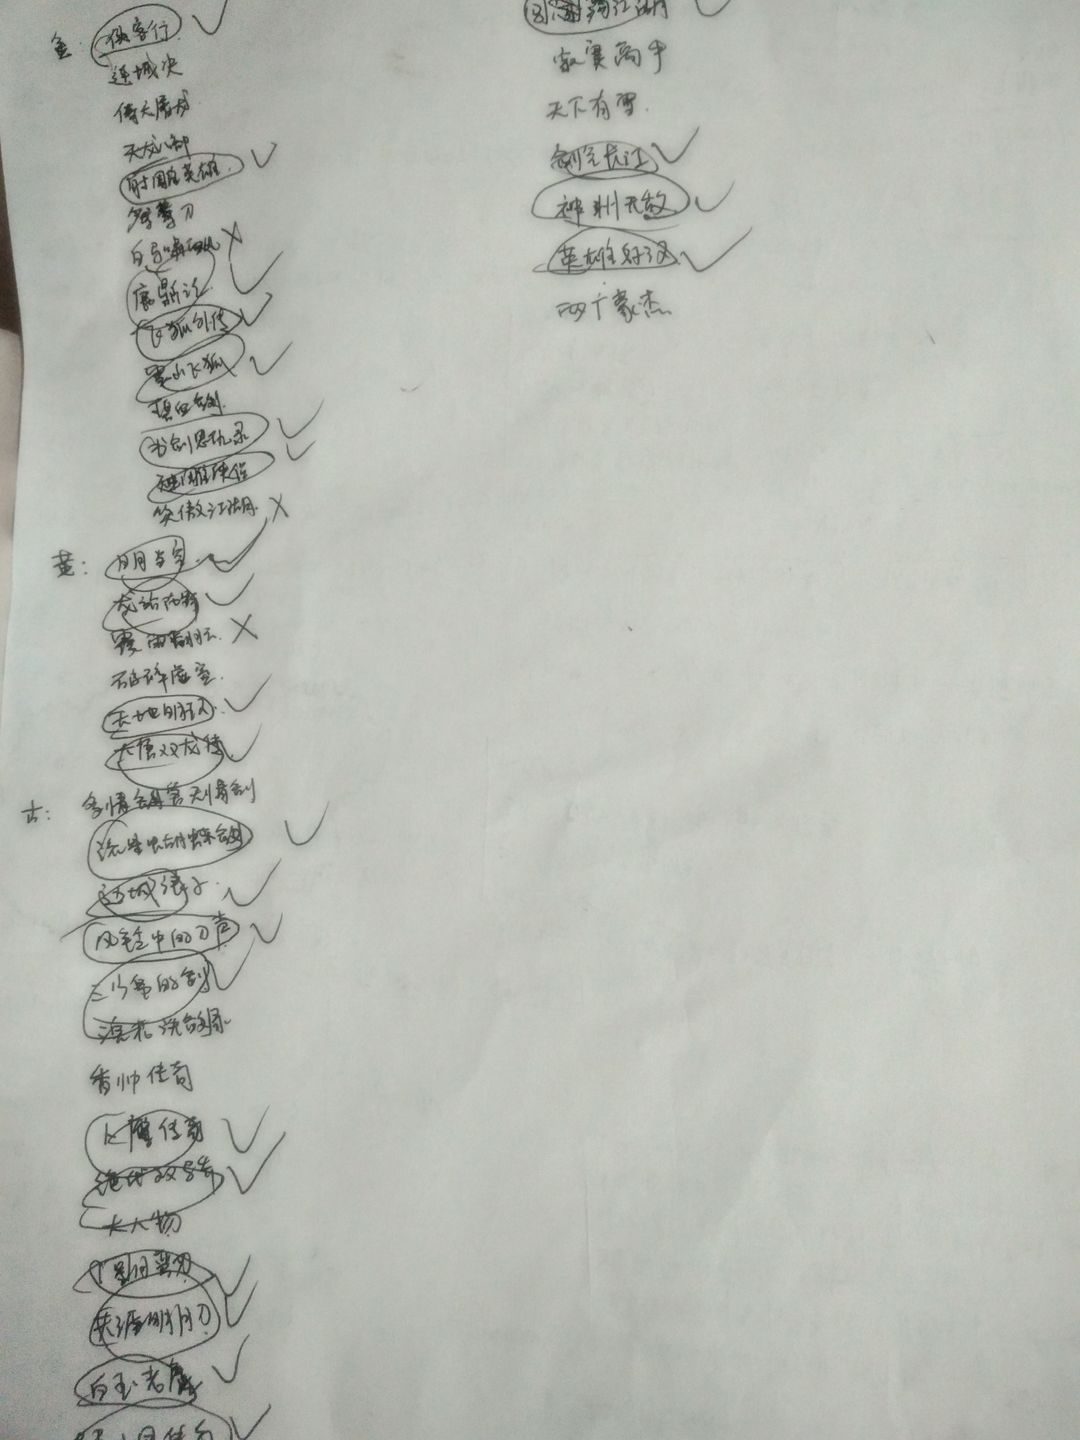 金: 侠客行
连城决
倚天屠龙
天龙八部
射雕英雄
鸳鸯刀
白马啸西风
鹿鼎记
飞狐外传
雪山飞狐
碧血剑
书剑恩仇录
神雕侠侣
笑傲江湖
黄: 日月当空
龙战在野
覆雨翻云
破碎虚空
天地明环
大唐双龙传
古: 多情剑客无情剑
流星蝴蝶剑
边城浪子
风铃中的刀声
三少爷的剑
浣花洗剑录
香帅传奇
飞鹰传奇
绝代双骄
大人物
圆月弯刀
天涯明月刀
白玉老虎
闯荡江湖
寂寞高手
天下有雪
剑气长江
神州无敌
英雄好汉
两广豪杰